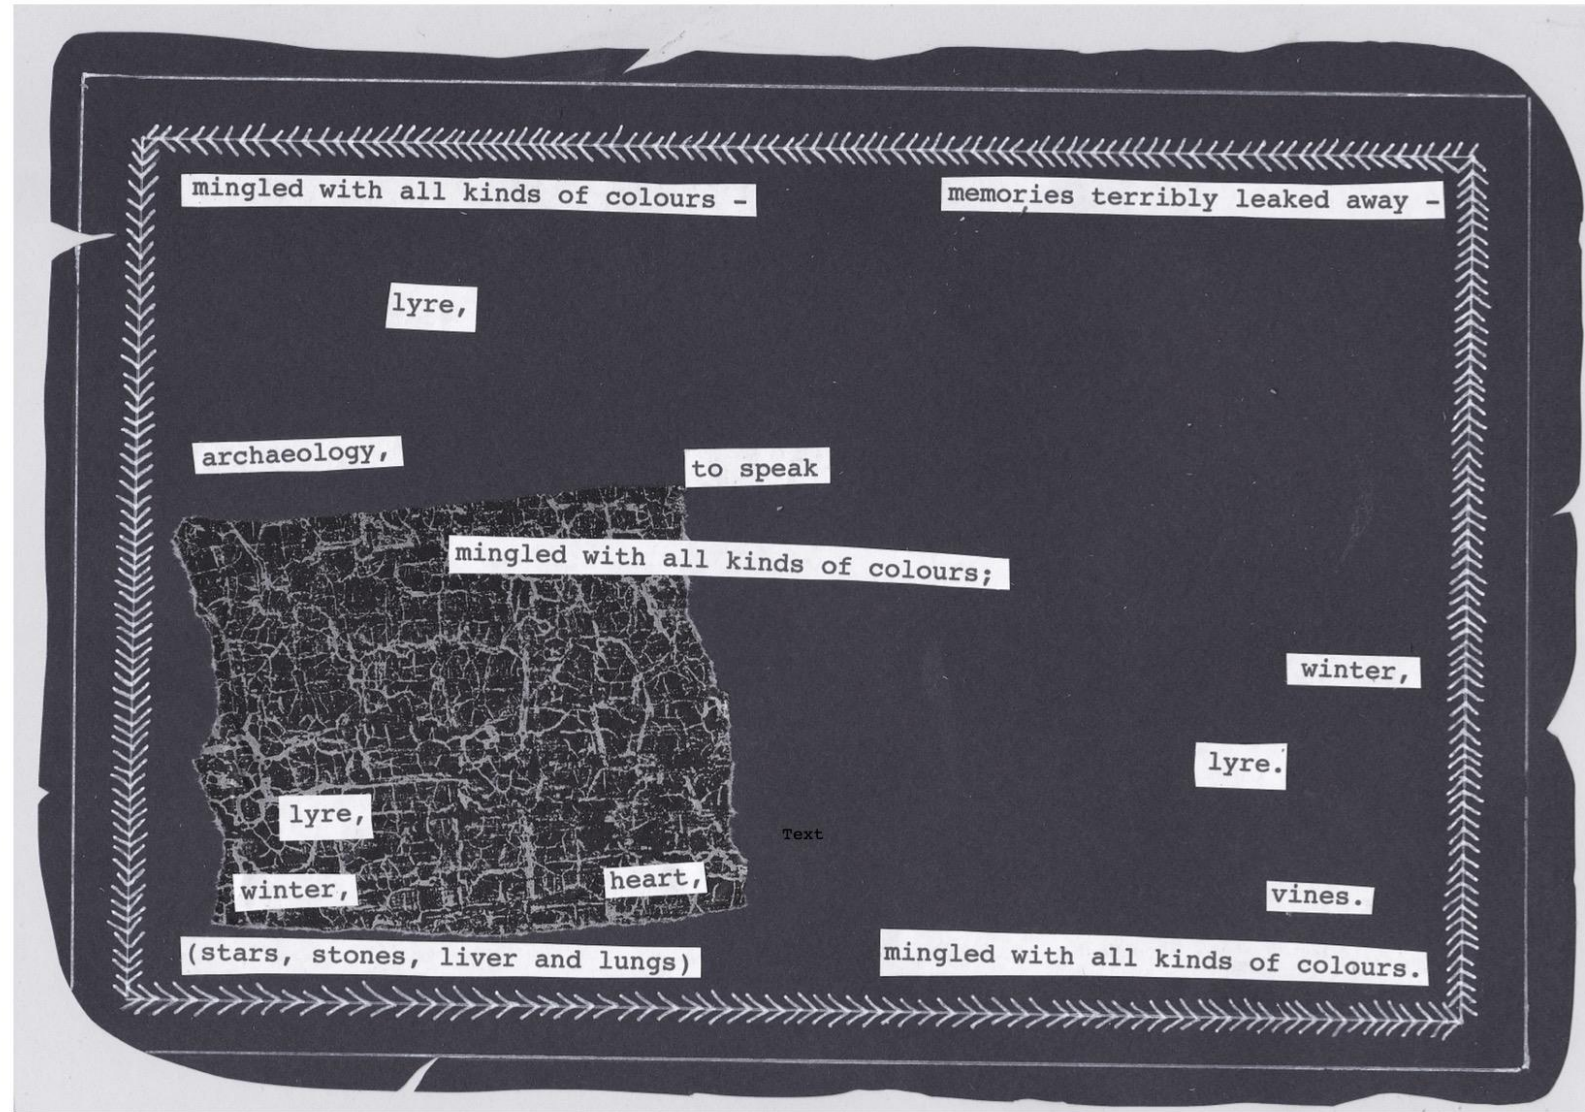 mingled with all kinds of colours –
memories terribly leaked away –
lyre,
archaeology,
to speak
mingled with all kinds of colours;
winter,
lyre.
lyre,
Text
winter,
heart,
vines.
(stars, stones, liver and lungs)
mingled with all kinds of colours.